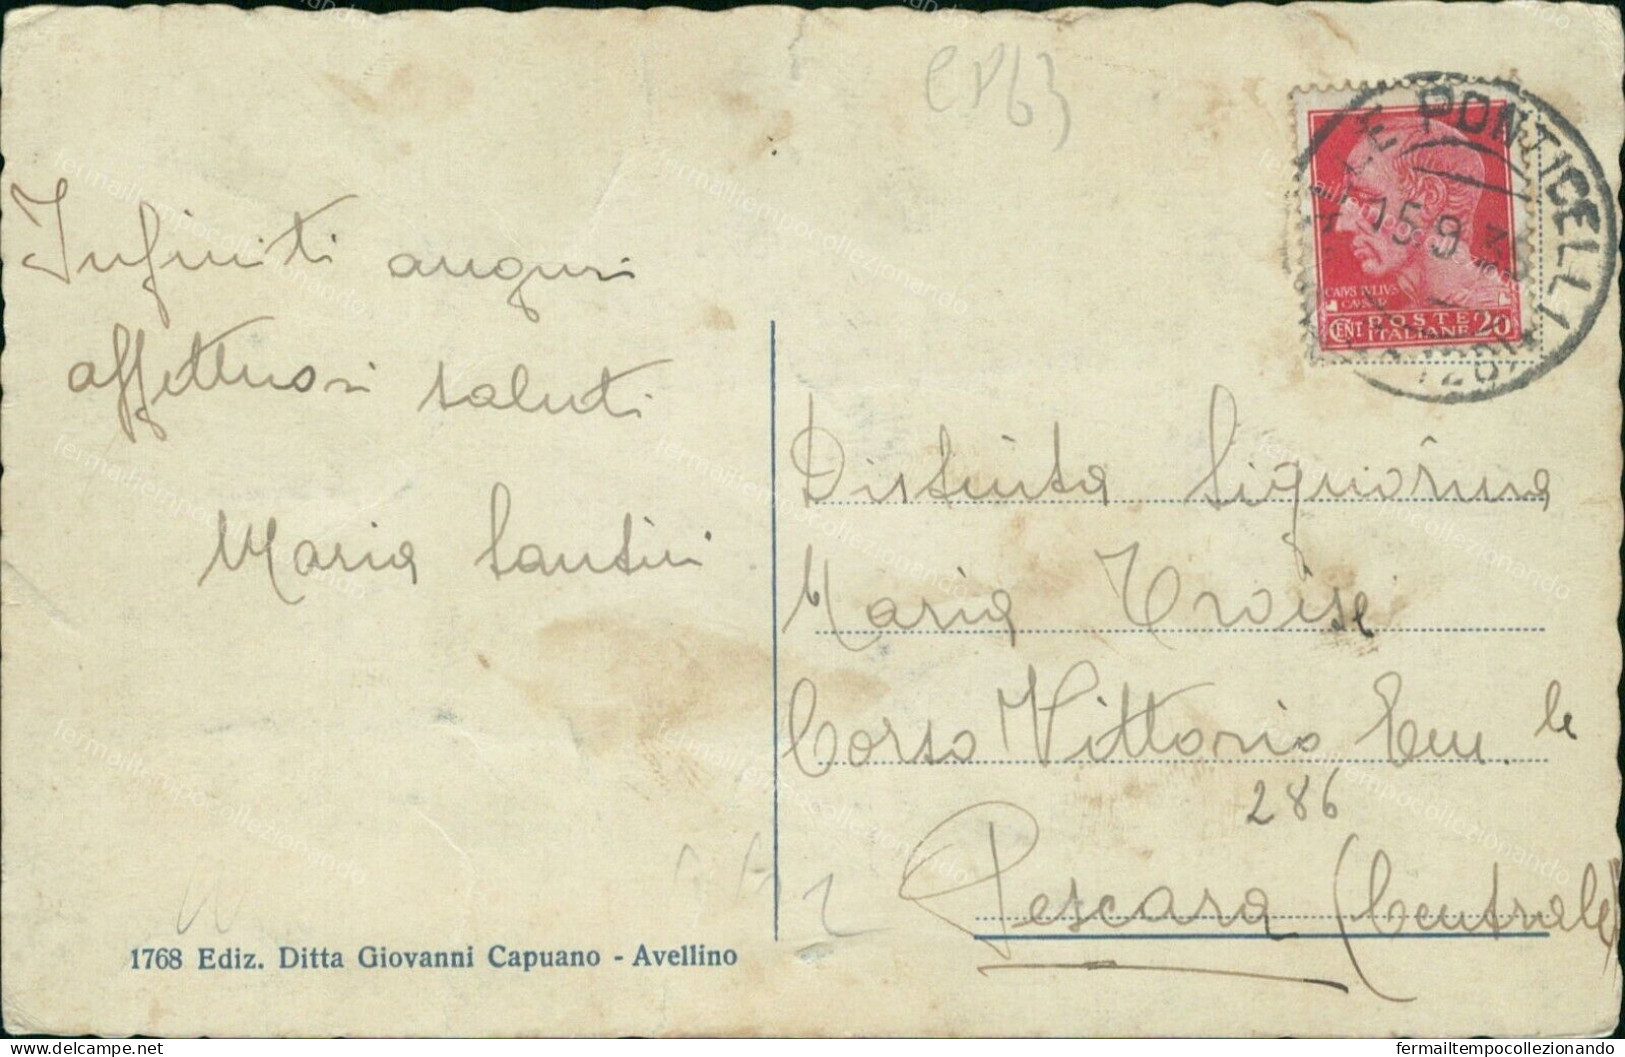 CP63
Infiniti auguri
affettuosi saluti
Maria Santini
1768 Ediz. Ditta Giovanni Capuano - Avellino
PONTICELLI
15.9
CAIVS IVLIVS
CAESAR
CENT POSTE 20
ITALIANE
Distinta Signorina
Maria Troise
Corso Vittorio Em.le
286
Pescara (Centrale)
delcampe.net
fermailtempocollezionando